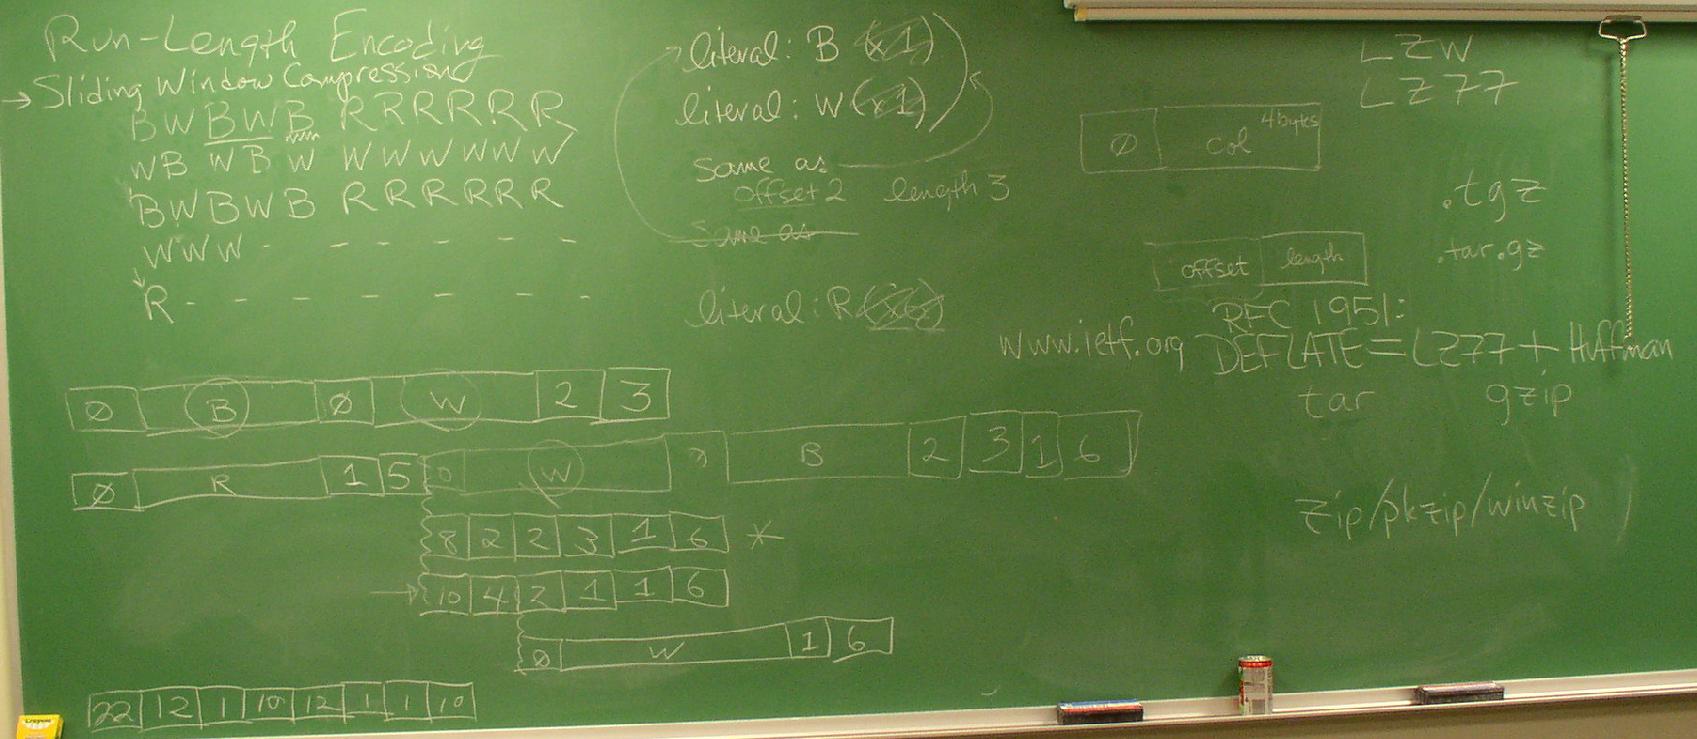 Run-Length Encoding
→ Sliding Window Compression
BWBWB RRRRRR
WB WB W WWWWWW
BWBWB RRRRRR
WWW - - - - - -
R - - - - - - -
literal: B (x1)
literal: W (x1)
same as
offset 2 length 3
same as
literal: R
LZW
LZ77
Ø col 4 bytes
.tgz
.tar.gz
offset length
RFC 1951:
www.ietf.org DEFLATE = LZ77 + Huffman
tar gzip
zip/pkzip/winzip
Ø B Ø W 2 3
Ø R 1 5 0 W B 2 3 1 6
8 2 2 3 1 6 *
→ 10 4 2 1 1 6
Ø W 1 6
22 12 1 10 12 1 1 10